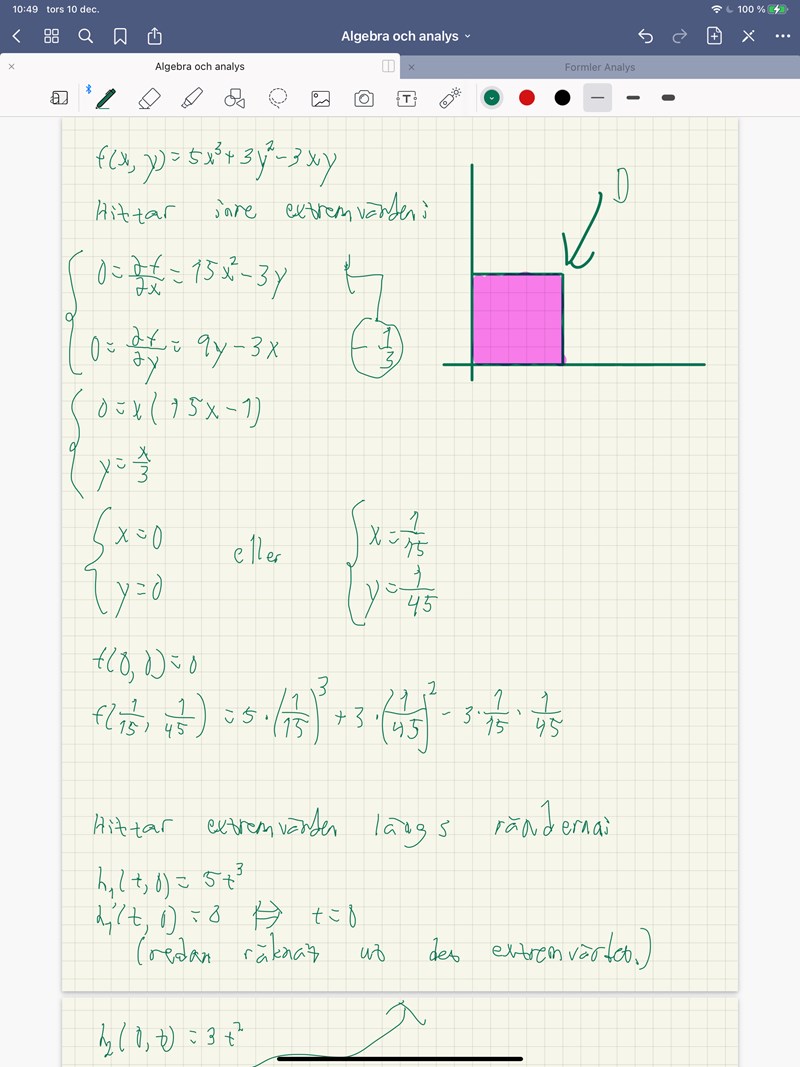 10:49 tors 10 dec.
100 %
Algebra och analys
Algebra och analys
Formler Analys
f(x, y) = 5x³ + 3y² - 3xy
Hittar inre extremvärden:
D
0 = ∂f/∂x = 15x² - 3y
0 = ∂f/∂y = 9y - 3x
- 1/3
0 = x(15x - 1)
y = x/3
x = 0 eller x = 1/15
y = 0 y = 1/45
f(0, 0) = 0
f(1/15, 1/45) = 5 · (1/15)³ + 3 · (1/45)² - 3 · 1/15 · 1/45
Hittar extremvärden längs ränderna:
h₁(t, 0) = 5t³
h₁'(t, 0) = 0 ⇔ t = 0
(redan räknat ut det extremvärdet.)
h₂(0, t) = 3t²